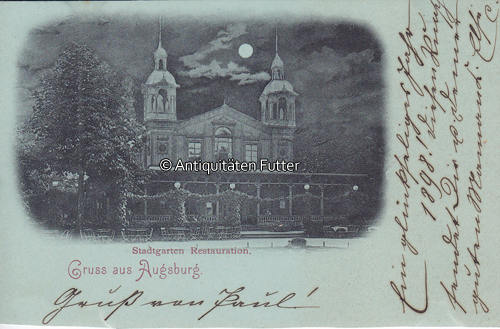 © Antiquitäten Futter
Stadtgarten Restauration.
Gruss aus Augsburg.
Gruß von Paul!
Ein glückseliges Jahr
1898!
sendet Dir u. Deinem
guten Mariannd